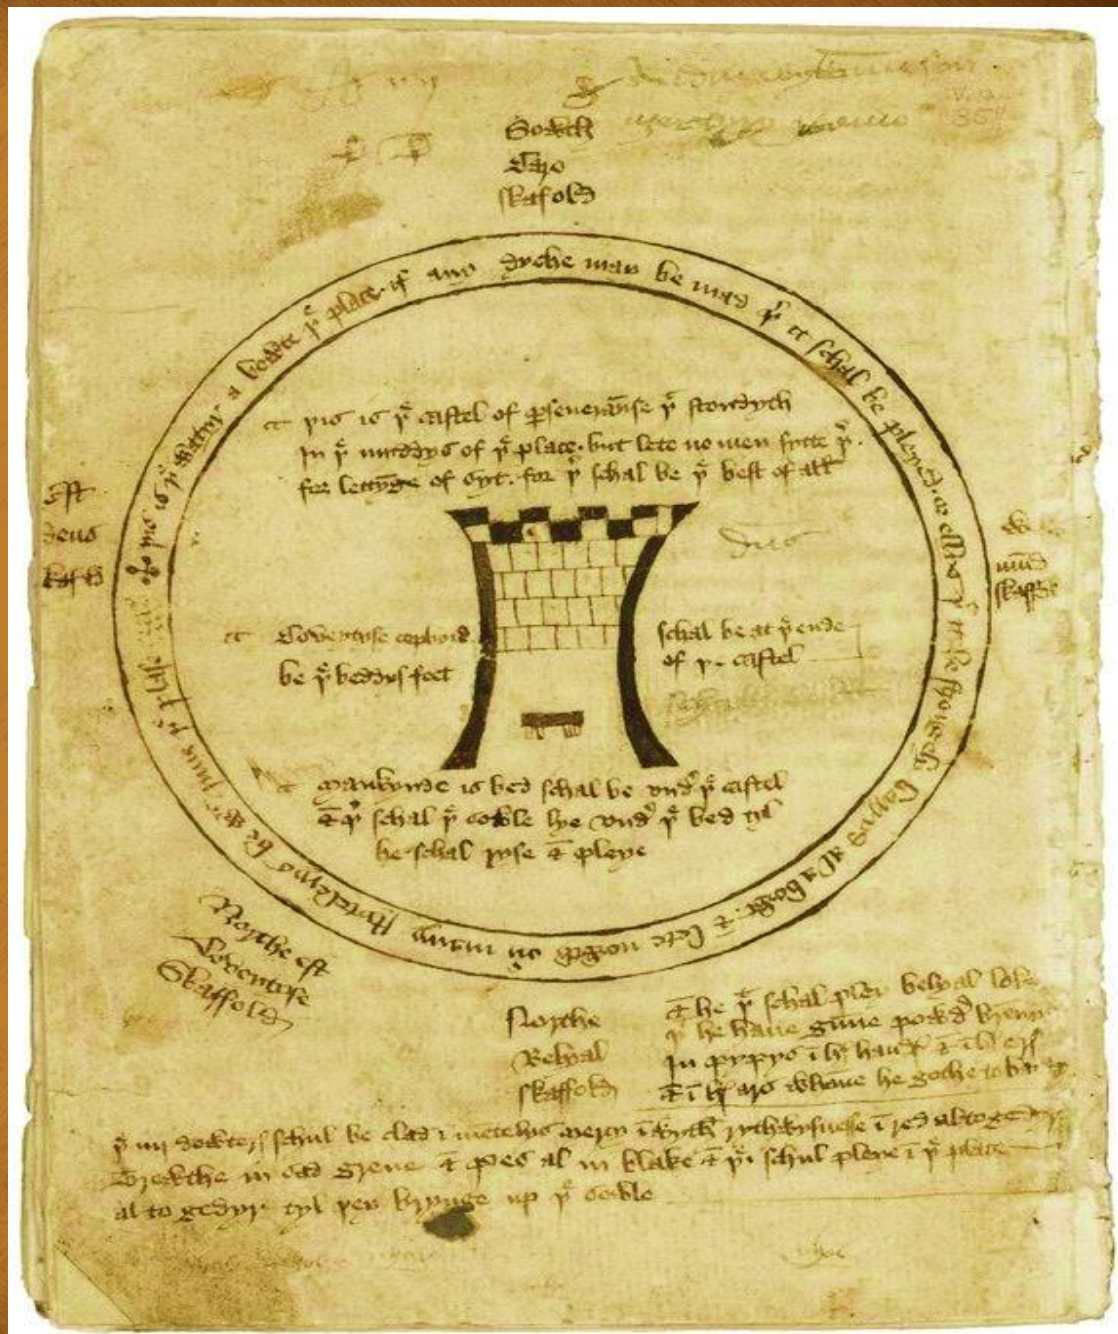 Sowth
Caro
skafold
þis is þᵉ watyr a bowte þᵉ place. if any dyche may be mad þʳ it schal be pleyed. or ellys þᵗ it be strongely barryd al a bowt. & lete nowth ouʳ many stytelerys be wᵗ inne þᵉ plase
þis is þᵉ castel of pseueraunse þᵗ stondyth
In þᵉ myddys of þᵉ place. but lete no men sytte þʳ.
for lettynge of syt. for þʳ schal be þᵉ best of all
Est
deus
skafold
W
mūd
skaffold
Coveytyse copbord
be þᵉ beddys feet
schal be at þᵉ ende
of þᵉ castel
Mankynde is bed schal be undʳ þᵉ castel
& þʳ schal þᵉ sowle lye undʳ þᵉ bed tyl
he schal ryse & pleye
Northe est
Coveytyse
Skaffold
Northe
Belyal
skaffold
& he þᵗ schal pley belyal loke
þᵗ he haue gūne powdʳ brennyng
In pypys ī hˢ handˢ & ī hˢ erˢ
& ī hˢ ars whāne he gothe to
þᵉ iiij dowterˢ schul be clad ī mētelys Mercy ī wyth rythwysnesse ī red altogedyr
Trewthe in sad grene & Pes al in blake & þei schul pleye ī þᵉ place
al to gedyr tyl þey brynge up þᵉ sowle